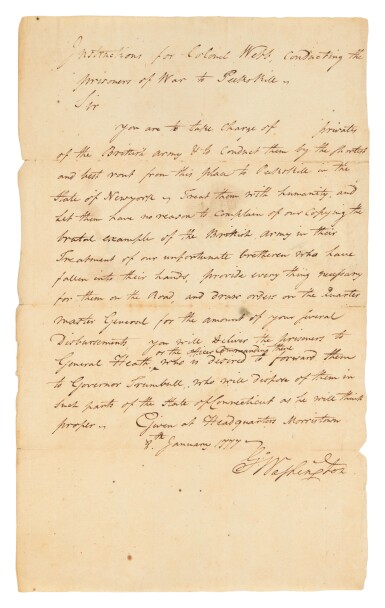 Instructions for Colonel Webb, conducting the
prisoners of War to Peekskill
Sir
you are to take Charge of privates
of the British Army & to Conduct them by the
and best rout from this place to Peekskill in the
State of Newyork Treat them with humanity, and
Let them have no reason to Complain of our Copying the
brutal example of the British Army in their
Treatment of our unfortunate bretheren who have
fallen into their hands, provide every thing necessary
for them on the Road, and draw orders on the Quarter
master General for the amount of your several
Disbursements. you will deliver the prisoners to
or the officer Commanding there
General Heath, who is desired to forward them
to Governor Trumbull, who will dispose of them in
such parts of the State of Connecticut as he will think
proper. Given at Headquarters Morristown
8.th January 1777
Go Washington